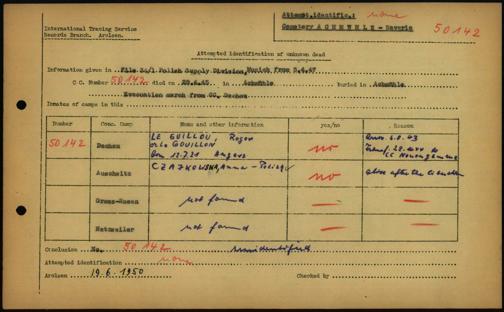 Attempt.identific.: none
Cemetery A C H M Ü H L E - Bavaria
50142
International Tracing Service
Records Branch. Arolsen.
Attempted identification of unknown dead
Information given in File 34/1 Polish Supply Division, Munich from 2.4.47
C.C. Number 50142 died on 29.4.45 in Achmühle buried in Achmühle
Evacuation march from CC. Dachau
Inmates of camps in this
Number Conc. Camp Name and other information yes/no Reason
50142 Dachau LE GUILLOU, Roger
or Le GOUILLON
born 12.7.21 Angers
no
Transf. to
CC Neuengamme
Auschwitz CZAJKOWSKA, Anna - no alive after the liberation
Gross-Rosen not found
Natzweiler not found
Conclusion No. 50142 unidentified
Attempted identification none
Arolsen 19.6.1950 Checked by